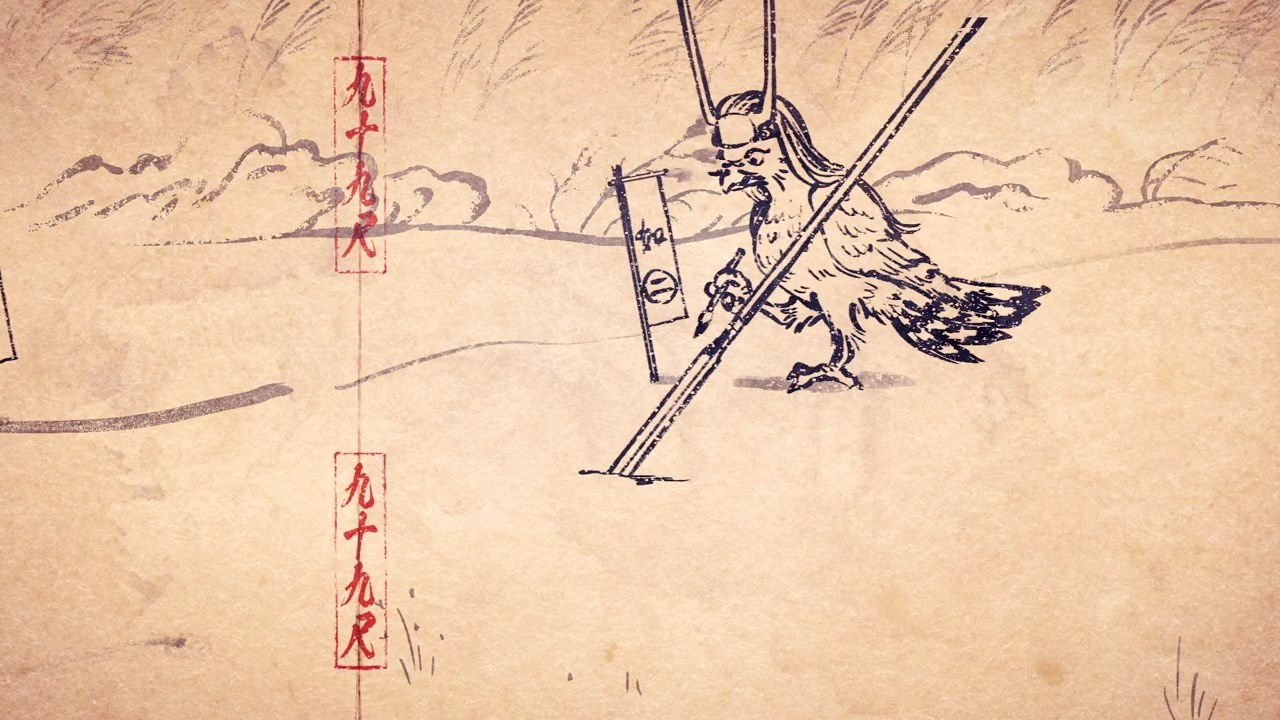 九十九尺
九十九尺